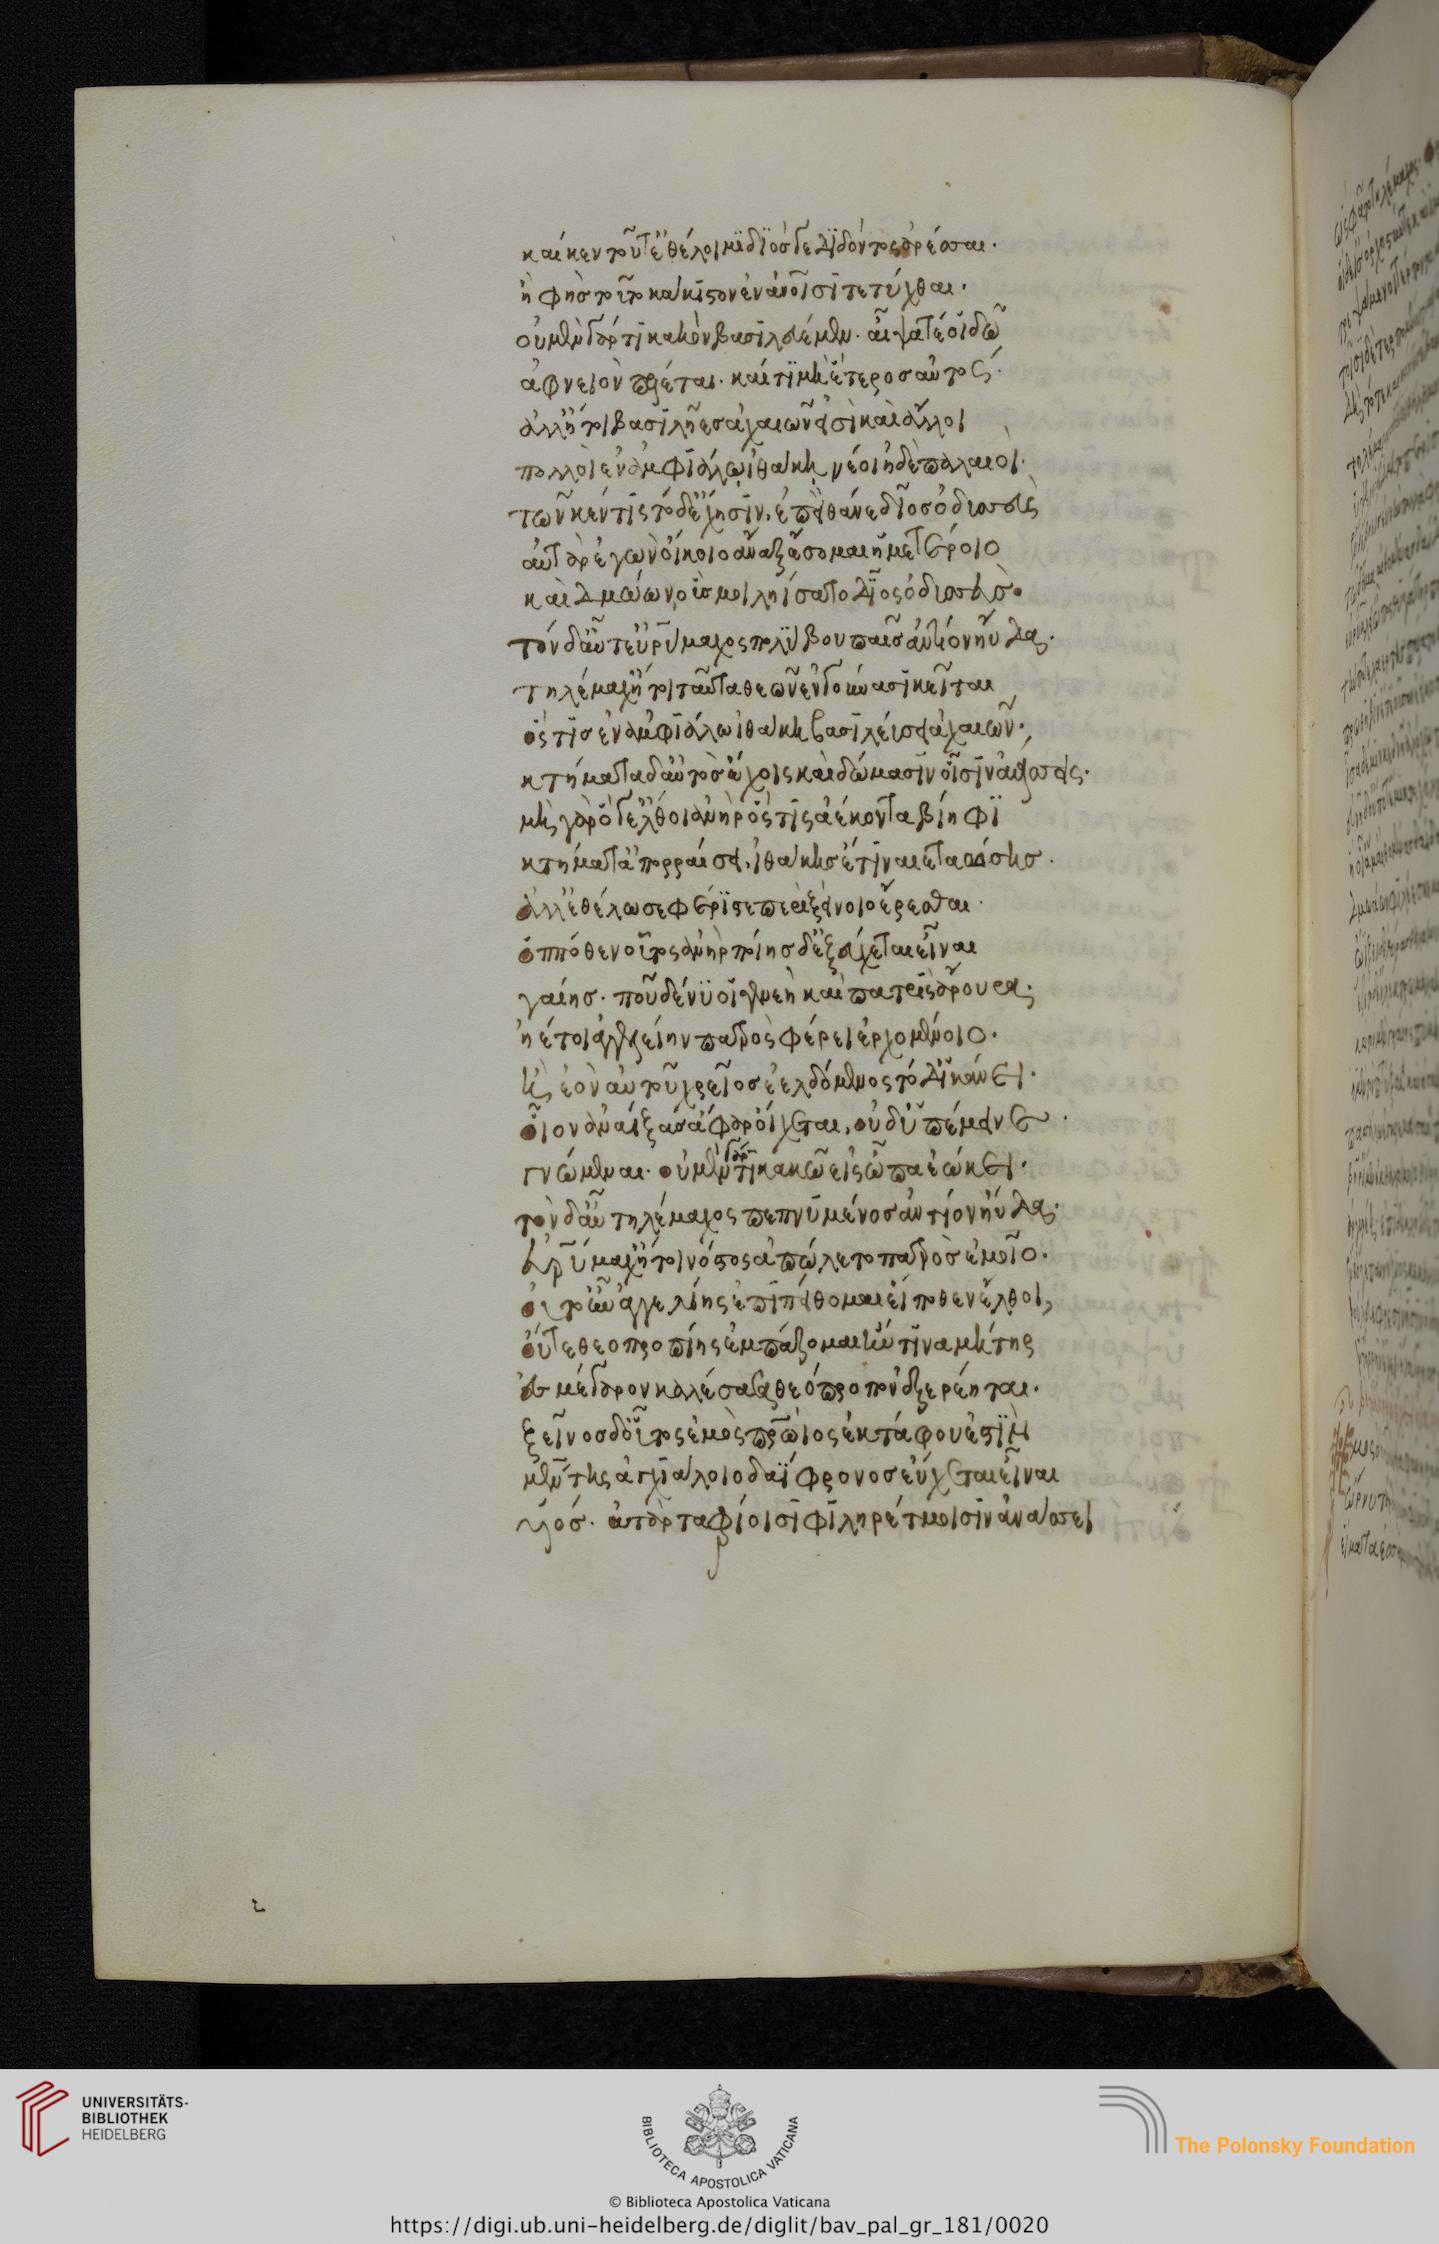 καί κεν τοῦτ' ἐθέλοιμι διός γε διδόντος ἀρέσθαι.
ἢ φῂς τοῦτο κάκιστον ἐν ἀνθρώποισι τετύχθαι.
οὐ μὲν γάρ τι κακὸν βασιλευέμεν. αἶψά τέ οἱ δῶ
ἀφνειὸν πέλεται. καὶ τιμηέστερος αὐτός.
ἀλλ' ἤτοι βασιλῆες ἀχαιῶν εἰσὶ καὶ ἄλλοι
πολλοὶ ἐν ἀμφιάλῳ ἰθάκῃ νέοι ἠδὲ παλαιοί.
τῶν κέν τις τόδ' ἔχῃσιν, ἐπεὶ θάνε δῖος ὀδυσσεὺς
αὐτὰρ ἐγὼν οἴκοιο ἄναξ ἔσομαι ἡμετέροιο
καὶ δμώων, οὕς μοι ληΐσατο δῖος ὀδυσσεύς.
τὸν δ' αὖτ' εὐρύμαχος πολύβου παῖς ἀντίον ηὔδα.
τηλέμαχ' ἤτοι ταῦτα θεῶν ἐν γούνασι κεῖται
ὅς τις ἐν ἀμφιάλῳ ἰθάκῃ βασιλεύσει ἀχαιῶν.
κτήματα δ' αὐτὸς ἔχοις καὶ δώμασιν οἷσιν ἀνάσσοις.
μὴ γὰρ ὅγ' ἔλθοι ἀνὴρ ὅς τις ἀέκοντα βίηφι
κτήματ' ἀπορραίσει, ἰθάκης ἔτι ναιεταώσης.
ἀλλ' ἐθέλω σε φέριστε περὶ ξείνοιο ἔρεσθαι.
ὁππόθεν οὗτος ἀνὴρ ποίης δ' ἐξ εὔχεται εἶναι
γαίης. ποῦ δέ νύ οἱ γενεὴ καὶ πατρὶς ἄρουρα.
ἠέ τοι ἀγγελίην πατρὸς φέρει ἐρχομένοιο.
ἢ ἑὸν αὐτοῦ χρεῖος ἐελδόμενος τόδ' ἱκάνει.
οἷον ἀναΐξας ἄφαρ οἴχεται, οὐδ' ὑπέμεινε
γνώμεναι. οὐ μὲν γάρ τι κακῷ εἰς ὦπα ἐῴκει.
τὸν δ' αὖ τηλέμαχος πεπνυμένος ἀντίον ηὔδα.
εὐρύμαχ' ἤτοι νόστος ἀπώλετο πατρὸς ἐμοῖο.
οὔτ' οὖν ἀγγελίης ἔτι πείθομαι εἴ ποθεν ἔλθοι,
οὔτε θεοπροπίης ἐμπάζομαι ἥν τινα μήτηρ
ἐς μέγαρον καλέσασα θεοπρόπον ἐξερέηται.
ξεῖνος δ' οὗτος ἐμὸς πατρώιος ἐκ τάφου ἐστὶ
μέντης ἀγχιάλοιο δαΐφρονος εὔχεται εἶναι
υἱός. ἀτὰρ ταφίοισι φιληρέτμοισιν ἀνάσσει
UNIVERSITÄTS-
BIBLIOTHEK
HEIDELBERG
BIBLIOTECA APOSTOLICA VATICANA
The Polonsky Foundation
© Biblioteca Apostolica Vaticana
https://digi.ub.uni-heidelberg.de/diglit/bav_pal_gr_181/0020